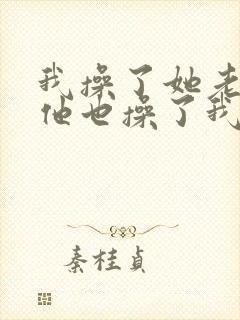 我操了她老
他也操了我
秦桂贞